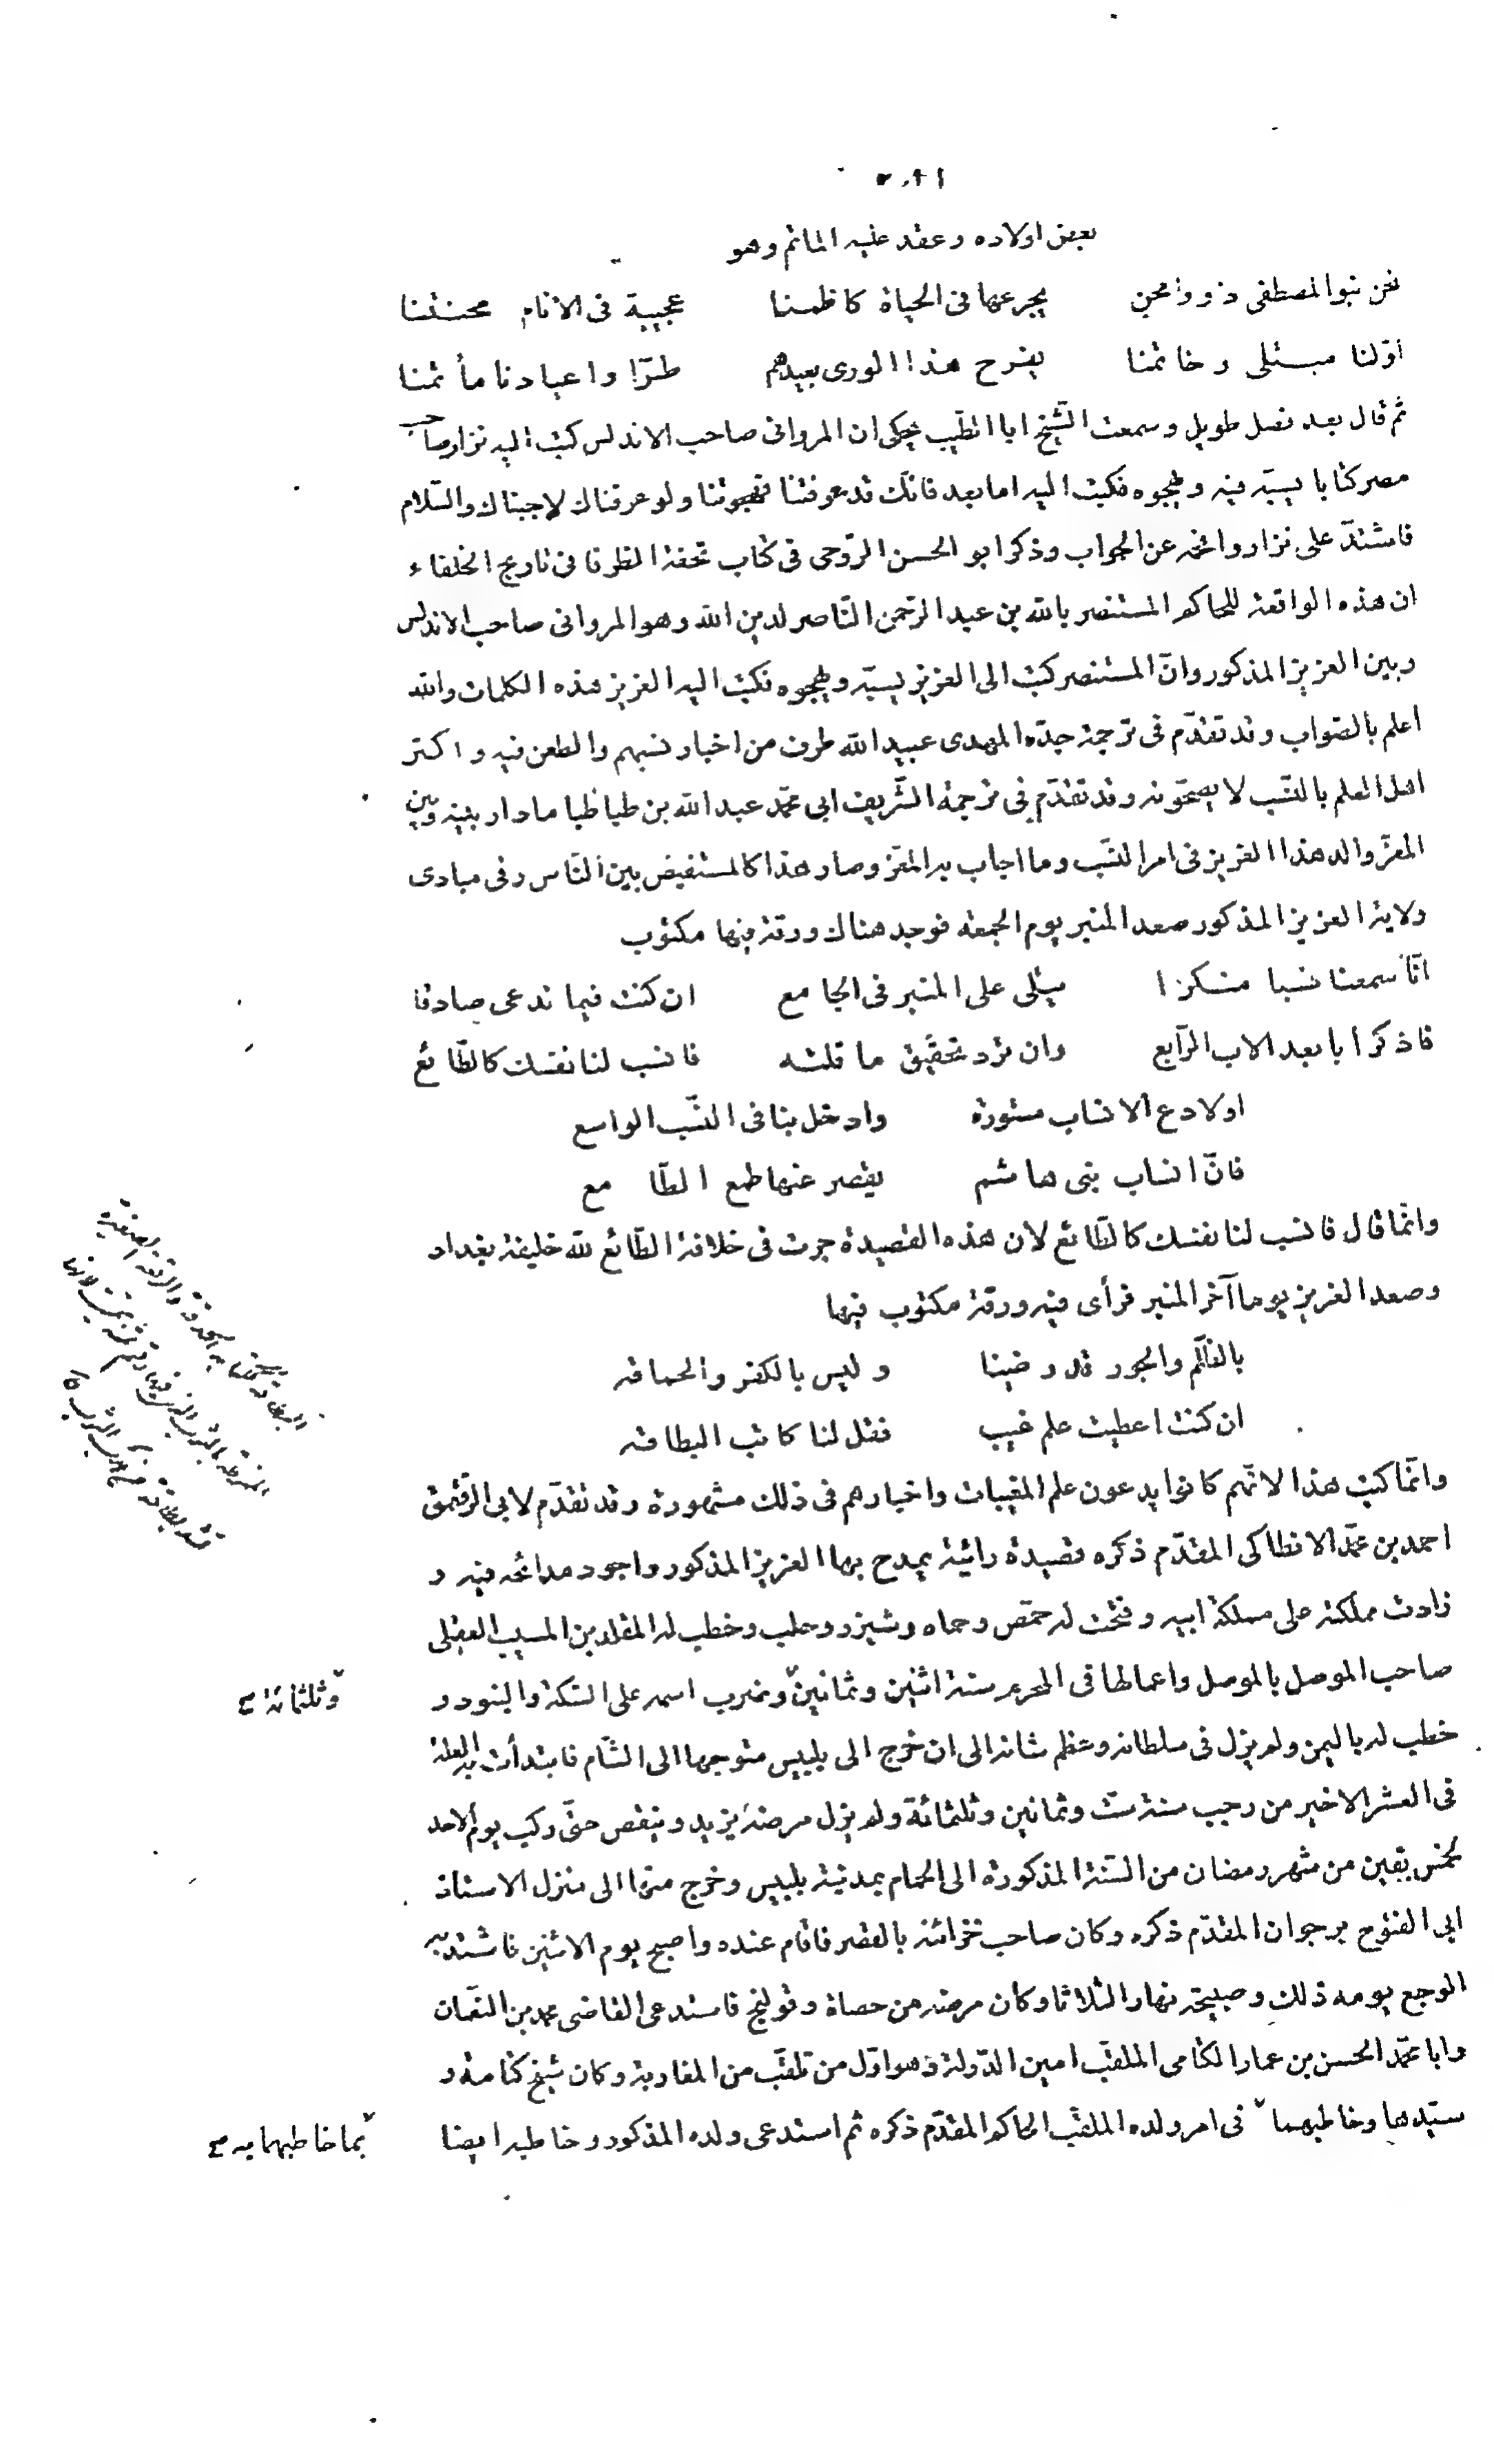 بعض اولاده وعقد عليه المأتم وهو
نحن بنو المصطفى ذوو محن يجرعها فى الحياة كاظمنا عجيبة فى الانام محنتنا
اوّلنا مبتلى وخاتمنا يفرح هذا الورى بعيدهم طرّا واعيادنا مأتمنا
ثم قال بعد فصل طويل وسمعت الشّيخ ابا الطّيب يحكى ان المروانى صاحب الاندلس كتب اليه نزار صاحب
مصر كتابا يسبّه فيه ويهجوه فكتب اليه اما بعد فانّك قد عرفتنا فهجوتنا ولو عرفناك لاجبناك والسّلام
فاشتدّ على نزار وافحمه عن الجواب وذكر ابو الحسن الرّوحى فى كتاب تحفة الظرفا فى تاريخ الخلفاء
ان هذه الواقعة للحاكم المستنصر بالله بن عبد الرّحمن النّاصر لدين الله وهو المروانى صاحب الاندلس
وبين العزيز المذكور وانّ المستنصر كتب الى العزيز يسبّه ويهجوه فكتب اليه العزيز هذه الكلمات والله
اعلم بالصّواب وقد تقدّم فى ترجمة جدّه المهدى عبيد الله طرف من اخبار نسبهم والطعن فيه واكثر
اهل العلم بالنّسب لا يصحّحونه وقد تقدّم فى ترجمة الشّريف ابى محمّد عبد الله بن طباطبا ما دار بينه وبين
المعزّ والد هذا العزيز فى امر النّسب وما اجاب به المعّز وصار هذا كالمستفيض بين النّاس وفى مبادى
ولاية العزيز المذكور صعد المنبر يوم الجمعة فوجد هناك ورقة فيها مكتوب
انّا سمعنا نسبا منكرا يتلى على المنبر فى الجامع ان كنت فيما تدعى صادقا
فاذكر ابا بعد الاب الرّابع وان ترد تحقيق ما قلته فانسب لنا نفسك كالطّائع
اولا دع الانساب مستورة وادخل بنا فى النّسب الواسع
فانّ انساب بنى هاشم يقصر عنها طمع الطّامع
وانّما قال فانسب لنا نفسك كالطّائع لان هذه القصيدة جرت فى خلافة الطّائع لله خليفة بغداد
وصعد العزيز يوما آخر المنبر فرأى فيه ورقة مكتوب فيها
بالظّلم والجور قد رضينا وليس بالكفر والحماقه
ان كنت اعطيت علم غيب فقل لنا كاتب البطاقه
وانّما كتب هذا لانّهم كانوا يدعون علم المغيبات واخبارهم فى ذلك مشهورة وقد تقدّم لابى الرّقعمق
احمد بن محمّد الانطاكى المقدّم ذكره قصيدة رائية يمدح بها العزيز المذكور واجود مدائحه فيه و
زادت مملكته على مملكة ابيه وفتحت له حمّص وحماه وشيزر وحلب وخطب له المقلد بن المسيب العقيلى
صاحب الموصل بالموصل واعمالها فى المحرم سنة اثنين وثمانين وضرب اسمه على السّكة والبنود و
وثلثمائة صح
خطب له باليمن ولم يزل فى سلطانه وعظم شانه الى ان خرج الى بلبيس متوجها الى الشّام فابتدأت به العلة
فى العشر الاخير من رجب سنة ستّ وثمانين وثلثمائة ولم يزل مرضه يزيد وينقص حتّى ركب يوم الاحد
لخمس بقين من شهر رمضان من السّنة المذكورة الى الحمام بمدينة بلبيس وخرج منها الى منزل الاستاذ
ابى الفتوح برجوان المقدّم ذكره وكان صاحب خزائنه بالقصر فاقام عنده واصبح يوم الاثنين فاشتد به
الوجع يومه ذلك وصبيحة نهار الثلاثا وكان مرضه من حصاة وقولنج فاستدعى القاضى محمد بن النعّمان
وابا محمّد الحسن بن عمار الكتامى الملقّب امين الدّولة وهو اوّل من تلقّب من المغاربة وكان شيخ كتامة و
سيّدها وخاطبهما فى امر ولده الملقّب الحاكم المقدّم ذكره ثم استدعى ولده المذكور وخاطبه ايضا
بما خاطبهما به صح